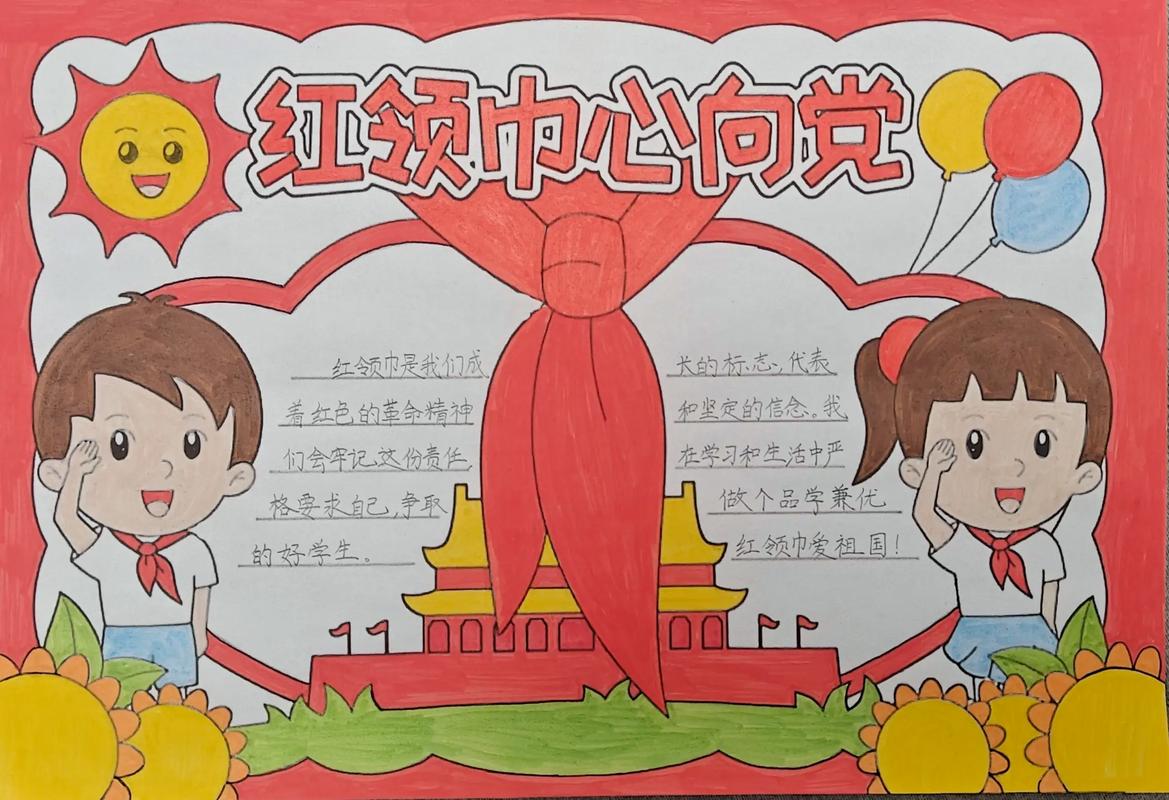 红领巾心向党
红领巾是我们成长的标志,代表
着红色的革命精神和坚定的信念。我
们会牢记这份责任,在学习和生活中严
格要求自己,争取做个品学兼优
的好学生。红领巾爱祖国!